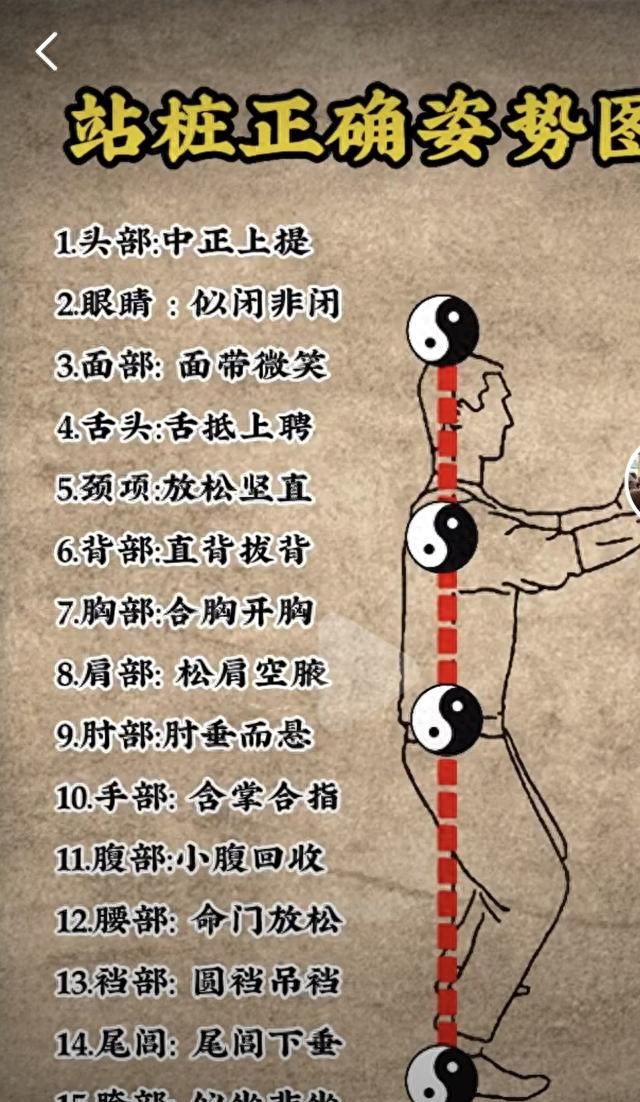 站桩正确姿势图
1.头部:中正上提
2.眼睛：似闭非闭
3.面部: 面带微笑
4.舌头:舌抵上聘
5.颈项:放松坚直
6.背部:直背拔背
7.胸部:合胸开胸
8.肩部: 松肩空腋
9.肘部:肘垂而悬
10.手部: 含掌合指
11.腹部:小腹回收
12.腰部: 命门放松
13.裆部: 圆裆吊裆
14.尾闾: 尾闾下垂
15.胯部: 似坐非坐